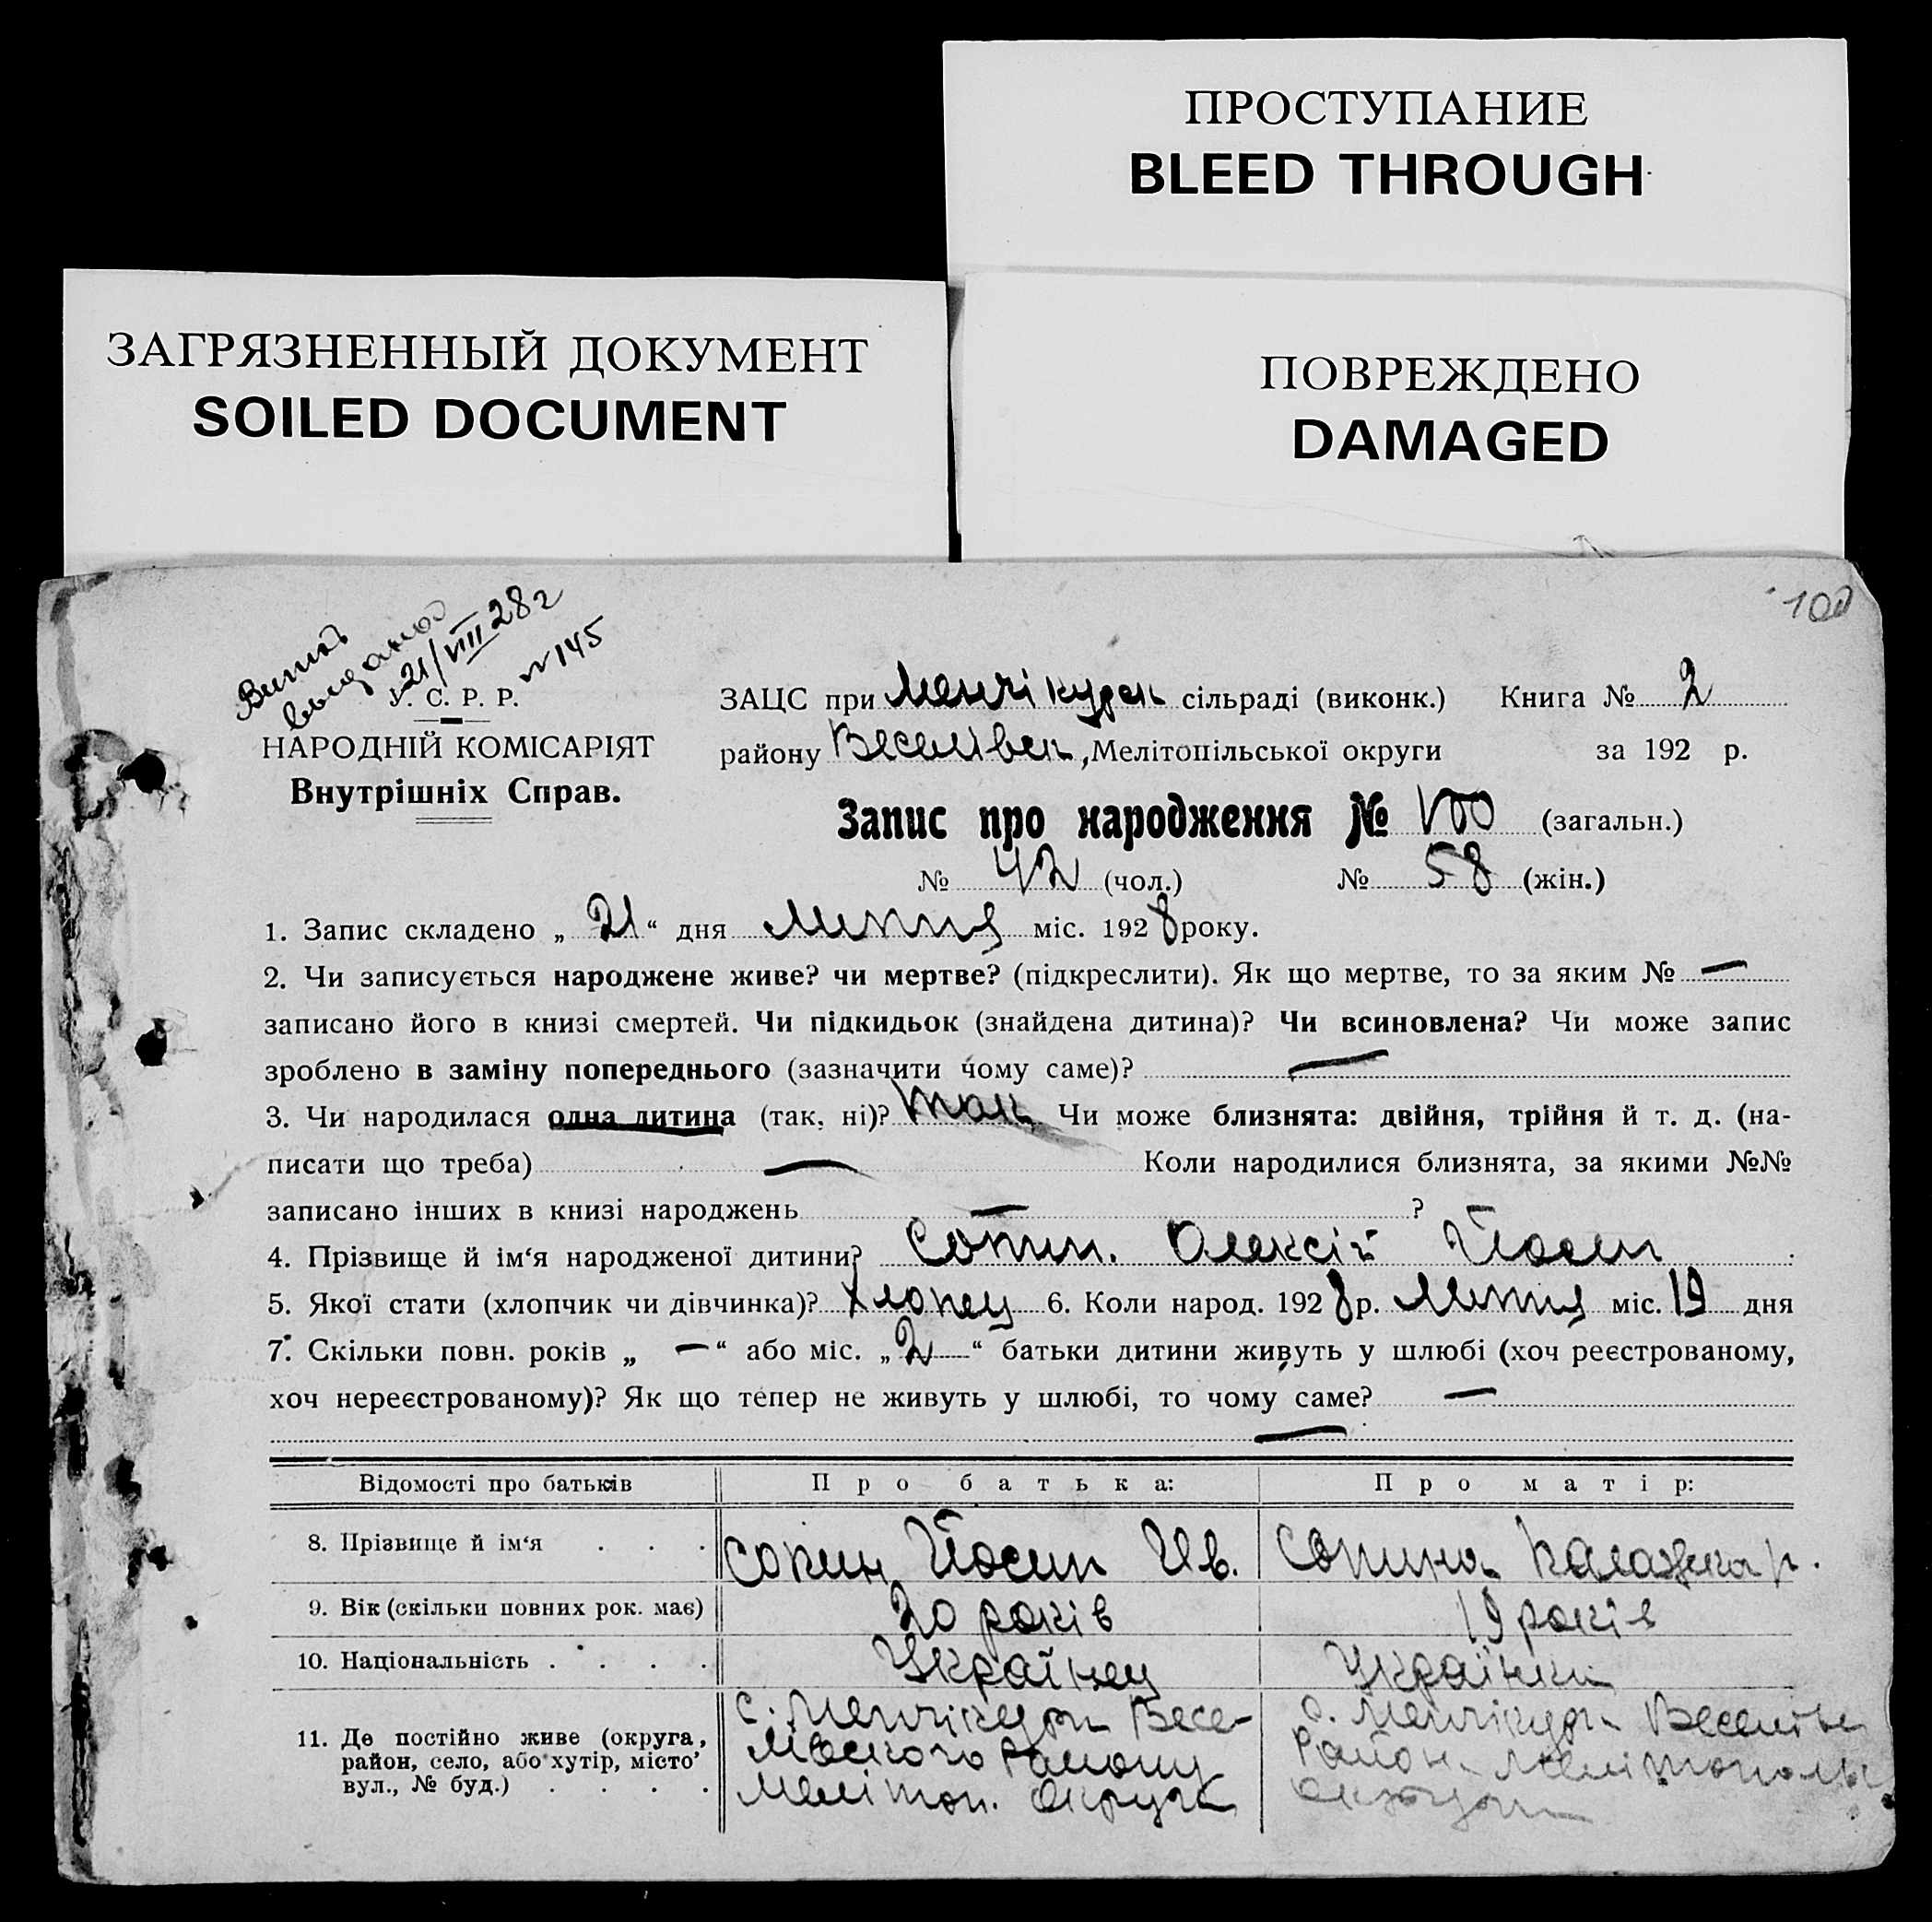 ПРОСТУПАНИЕ
BLEED THROUGH
ЗАГРЯЗНЕННЫЙ ДОКУМЕНТ
SOILED DOCUMENT
ПОВРЕЖДЕНО
DAMAGED
100
21/VIII 28 г
№ 145
У. С. Р. Р.
НАРОДНІЙ КОМІСАРІЯТ
Внутрішніх Справ.
ЗАЦС при Менчікурск сільраді (виконк.) Книга № 2
району Веселівск, Мелітопільської округи за 192 р.
Запис про народження № 100 (загальн.)
№ 42 (чол.) № 58 (жін.)
1. Запис складено „ 21 “ дня Липня міс. 1928 року.
2. Чи записується народжене живе? чи мертве? (підкреслити). Як що мертве, то за яким № —
записано його в книзі смертей. Чи підкидьок (знайдена дитина)? Чи всиновлена? Чи може запис
зроблено в заміну попереднього (зазначити чому саме)? —
3. Чи народилася одна дитина (так, ні)? так Чи може близнята: двійня, трійня й т. д. (на-
писати що треба) — Коли народилися близнята, за якими №№
записано інших в книзі народжень — ?
4. Прізвище й ім‘я народженої дитини? Сопин. Олексій Йосип
5. Якої стати (хлопчик чи дівчинка)? хлопец 6. Коли народ. 1928 р. Липня міс. 19 дня
7. Скільки повн. років „ — “ або міс. „ 2 “ батьки дитини живуть у шлюбі (хоч реєстрованому,
хоч нереєстрованому)? Як що тепер не живуть у шлюбі, то чому саме? —
—
Відомості про батьків Про батька: Про матір:
8. Прізвище й ім‘я . . . Сопин Йосип Ив. Сопина
9. Вік (скільки повних рок. має) 20 років 19 років
10. Національність . . . . Українец Українка
11. Де постійно живе (округа, с. Менчікури Весе- с. Менчікури Веселівск
район, село, або хутір, місто, лівского Району Район. Мелітополь
вул., № буд.) . . . . Мелітоп. Округи округи